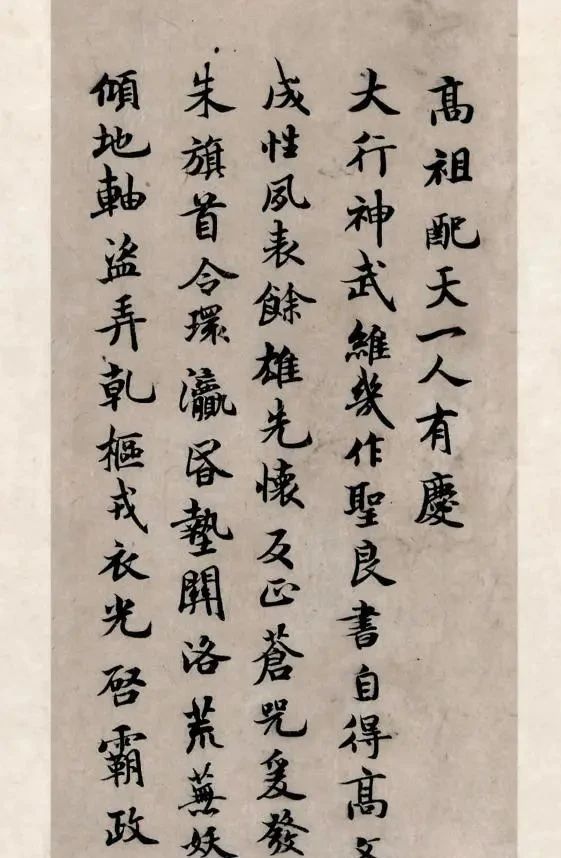 高祖配天一人有慶
大行神武維幾作聖良書自得高文
成性夙表餘雄先懷反正蒼兕爰發
朱旗首令環瀛昏墊關洛荒蕪妖
傾地軸盜弄乾樞戎衣光啓霸政